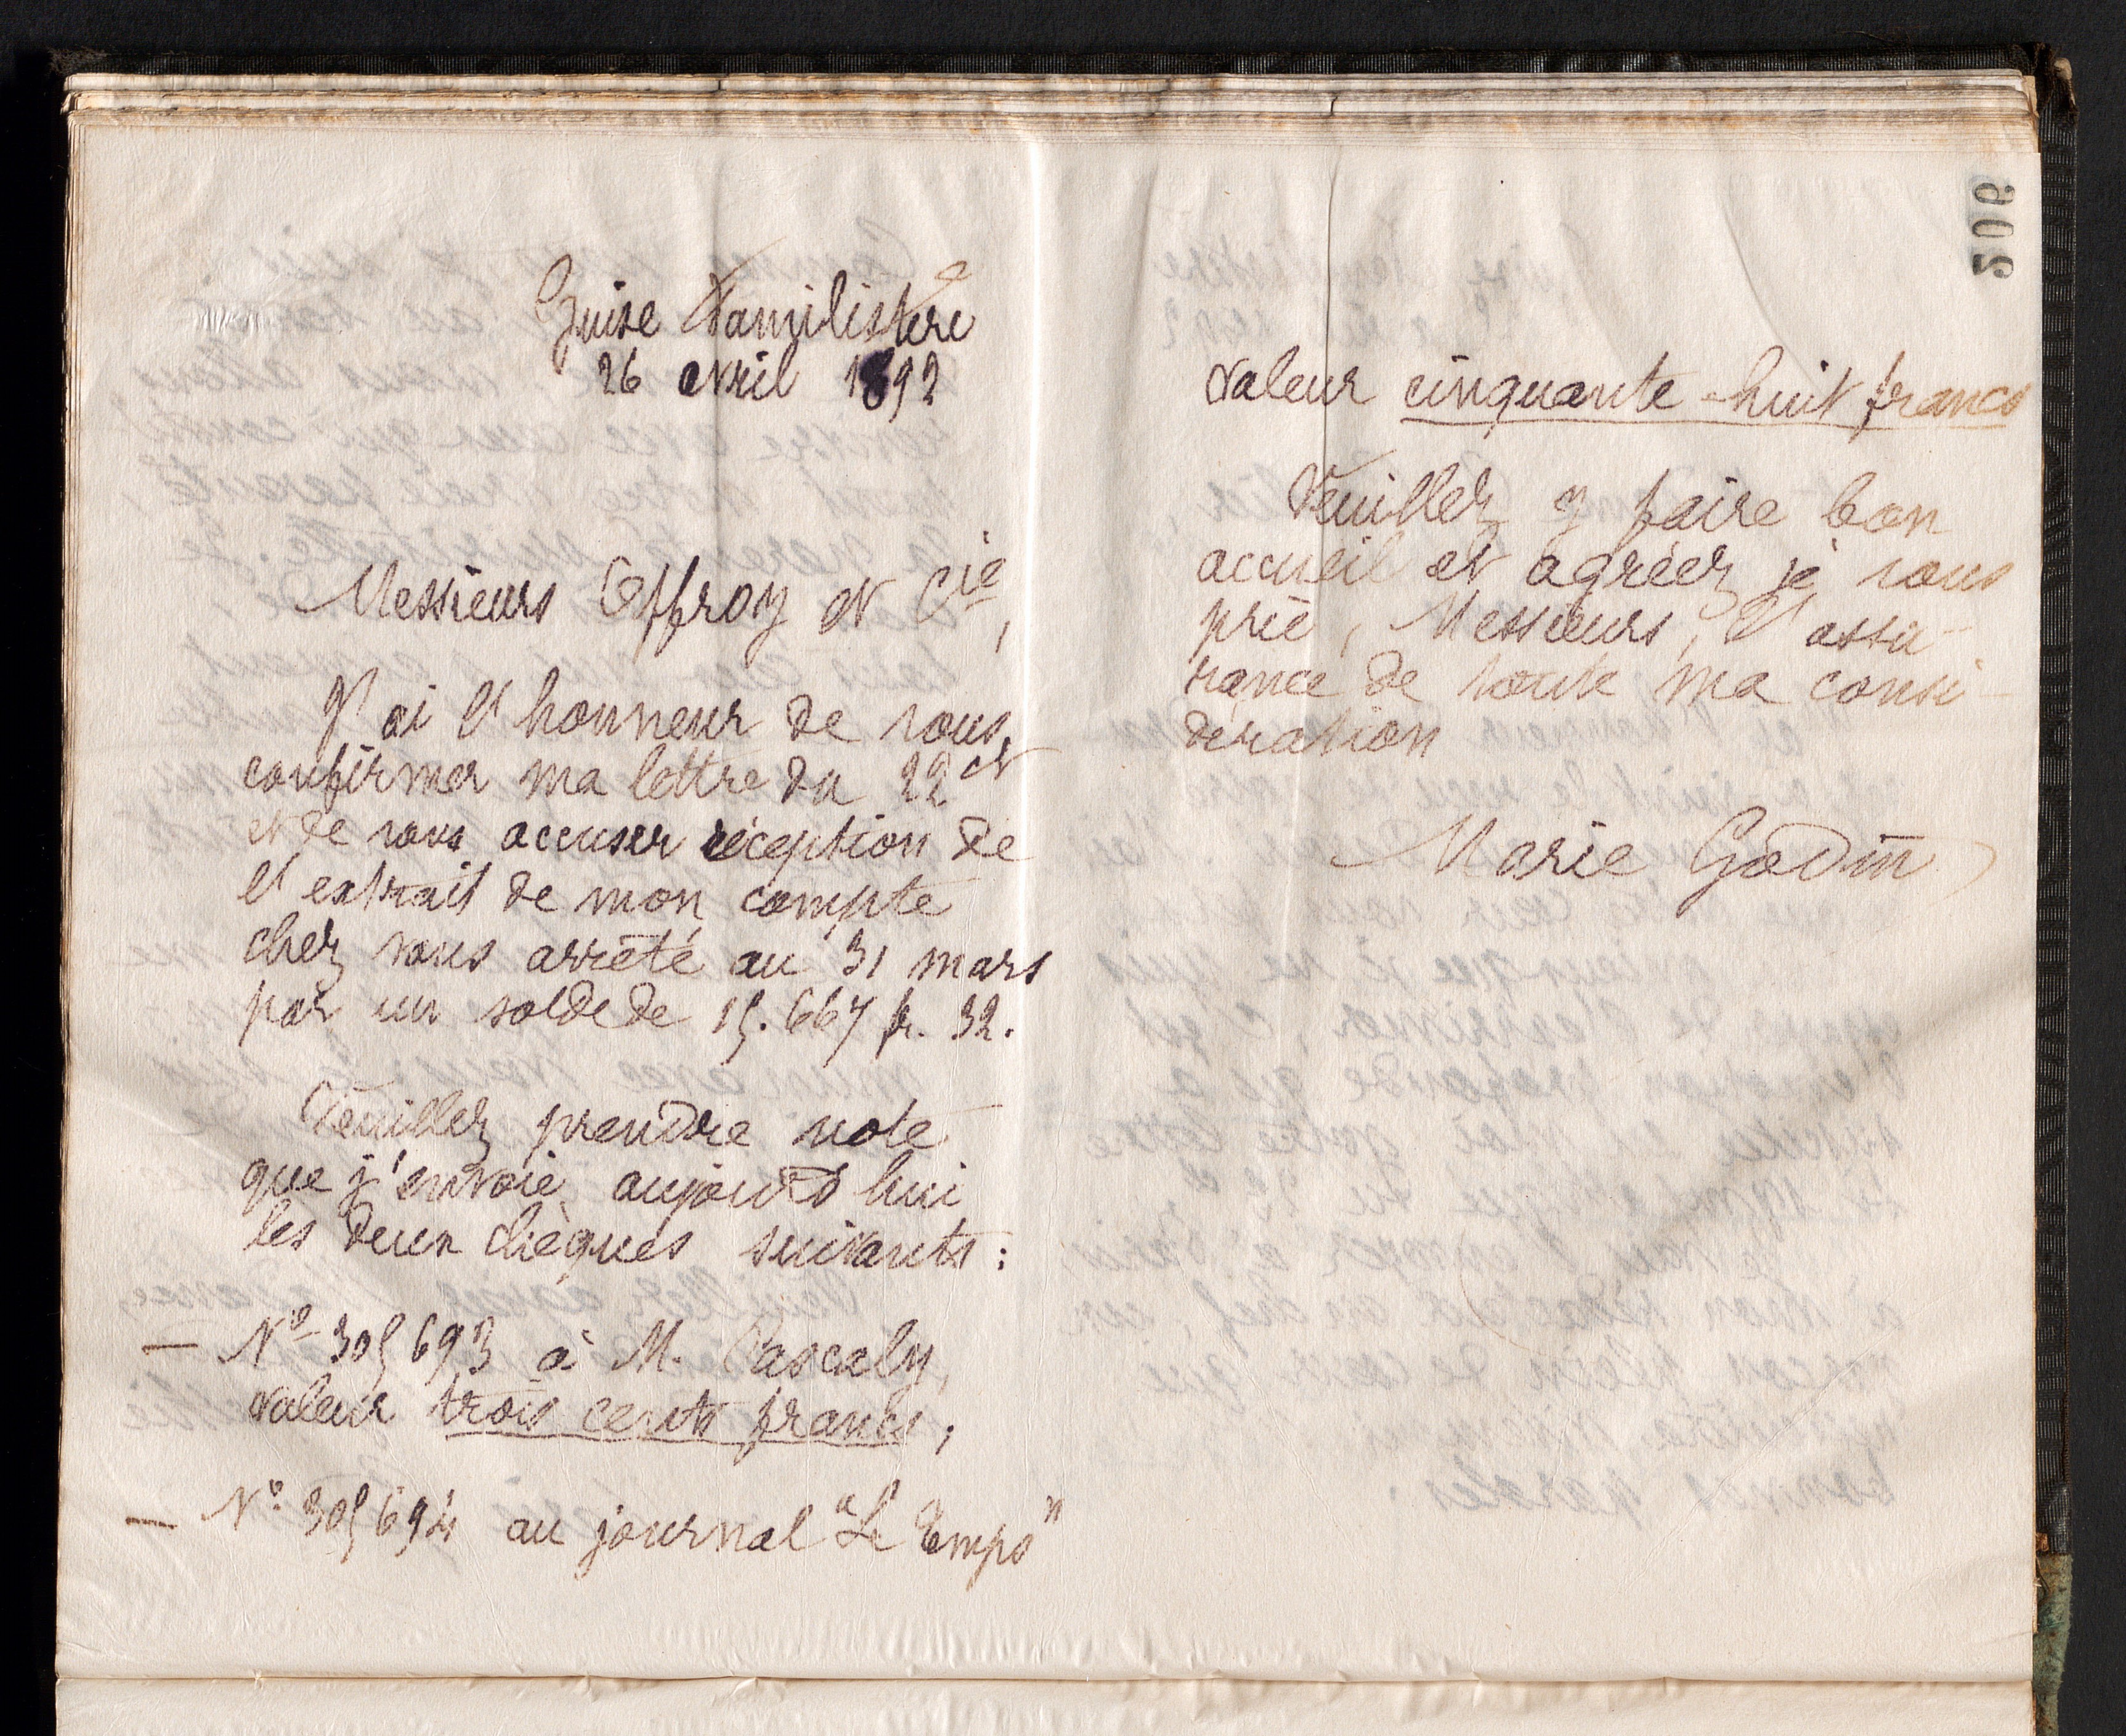 Guise Familistère
26 avril 1892
Messieurs Offroy et Cie,
J'ai l'honneur de vous
confirmer ma lettre du 22 ct
et de vous accuser réception de
l'extrait de mon compte
chez vous arrêté au 31 mars
par un solde de 15.667 fr. 32.
Veuillez prendre note
que j'envoie aujourd'hui
les deux chèques suivants :
— No 305693 à M. Pascaly,
valeur trois cents francs ;
— No 305694 au journal "Le Temps"
206
valeur cinquante-huit francs
Veuillez y faire bon
accueil et agréer, je vous
prie, Messieurs, l'assu-
rance de toute ma consi-
dération
Marie Godin